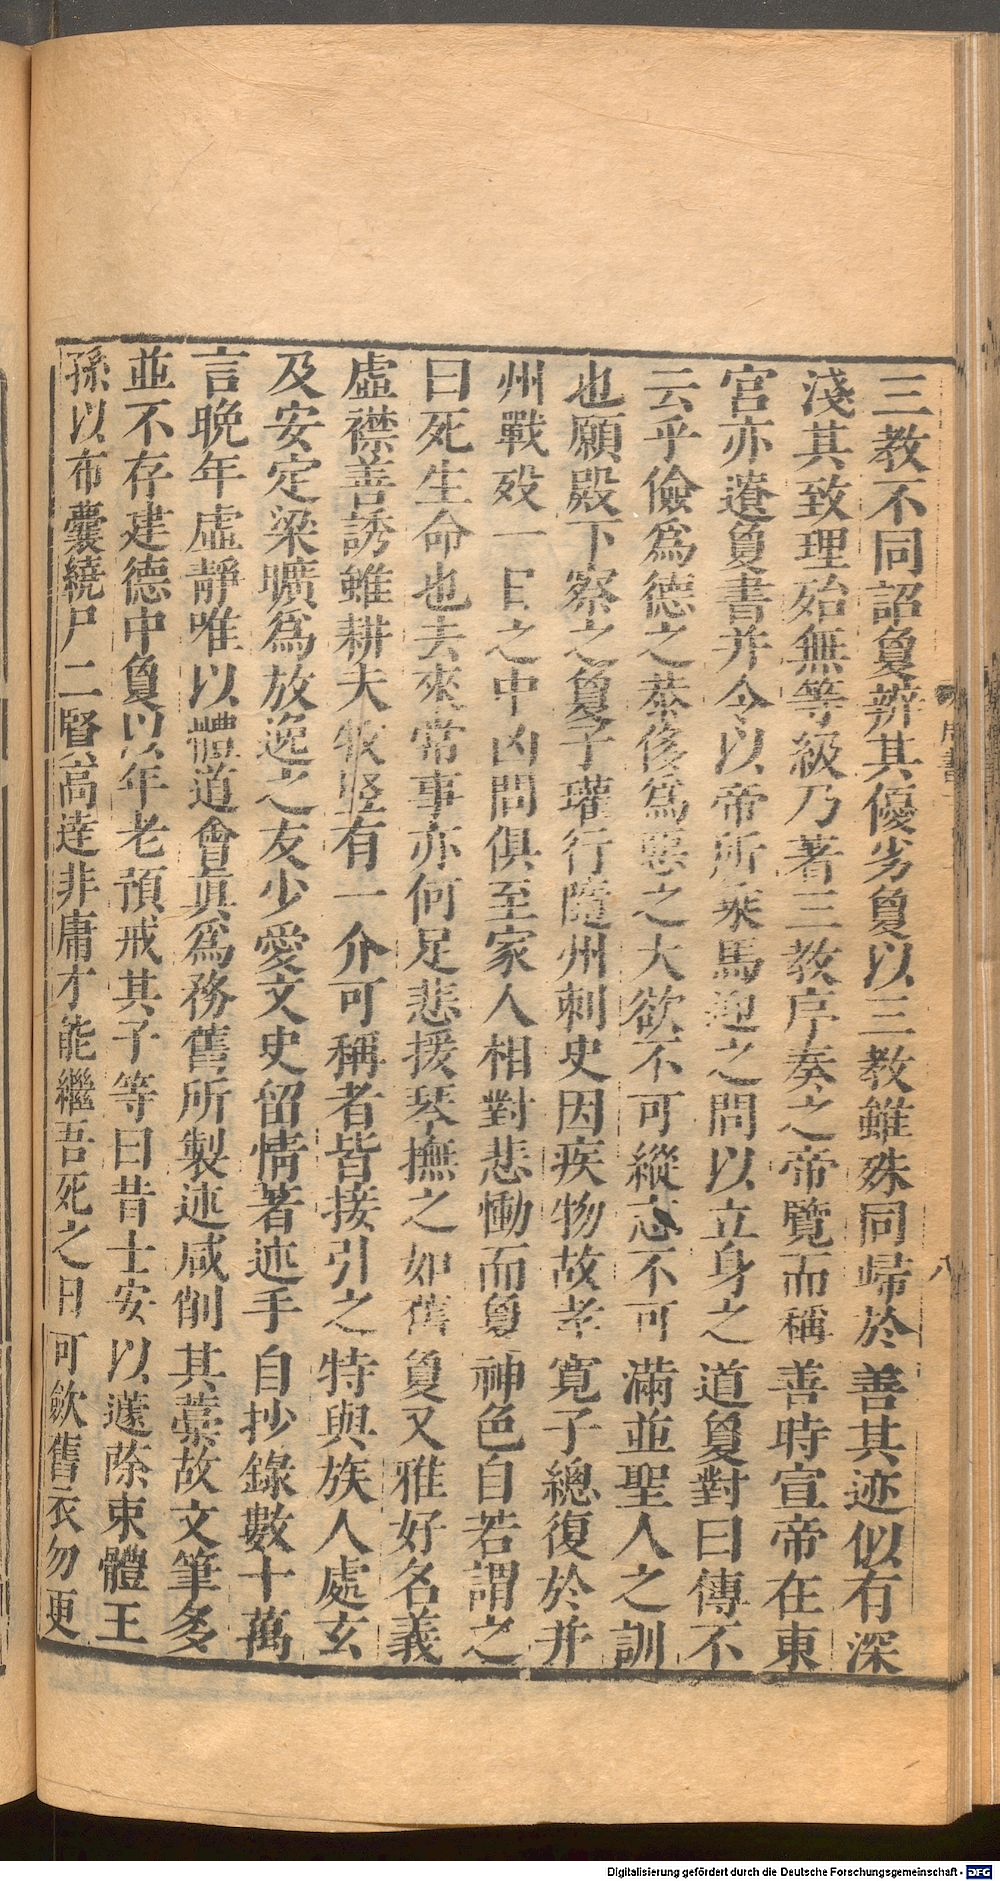 三教不同詔敻辨其優劣敻以三教雖殊同歸於善其迹似有深
淺其致理殆無等級乃著三教序奏之帝覽而稱善時宣帝在東
宮亦遺敻書并令以帝所乘馬迎之問以立身之道敻對曰傳不
云乎儉爲德之恭侈爲惡之大欲不可縱志不可滿並聖人之訓
也願殿下察之敻子瓘行隨州刺史因疾物故孝寬子總復於并
州戰歿一日之中凶問俱至家人相對悲慟而敻神色自若謂之
曰死生命也去來常事亦何足悲援琴撫之如舊敻又雅好名義
虛襟善誘雖耕夫牧竪有一介可稱者皆接引之特與族人處玄
及安定梁曠爲放逸之友少愛文史留情著述手自抄錄數十萬
言晚年虛靜唯以體道會眞爲務舊所製述咸削其藁故文筆多
並不存建德中敻以年老預戒其子等曰昔士安以蘧蒢束體王
孫以布囊繞尸二賢高達非庸才能繼吾死之日可斂舊衣勿更
周書
八
Digitalisierung gefördert durch die Deutsche Forschungsgemeinschaft - DFG